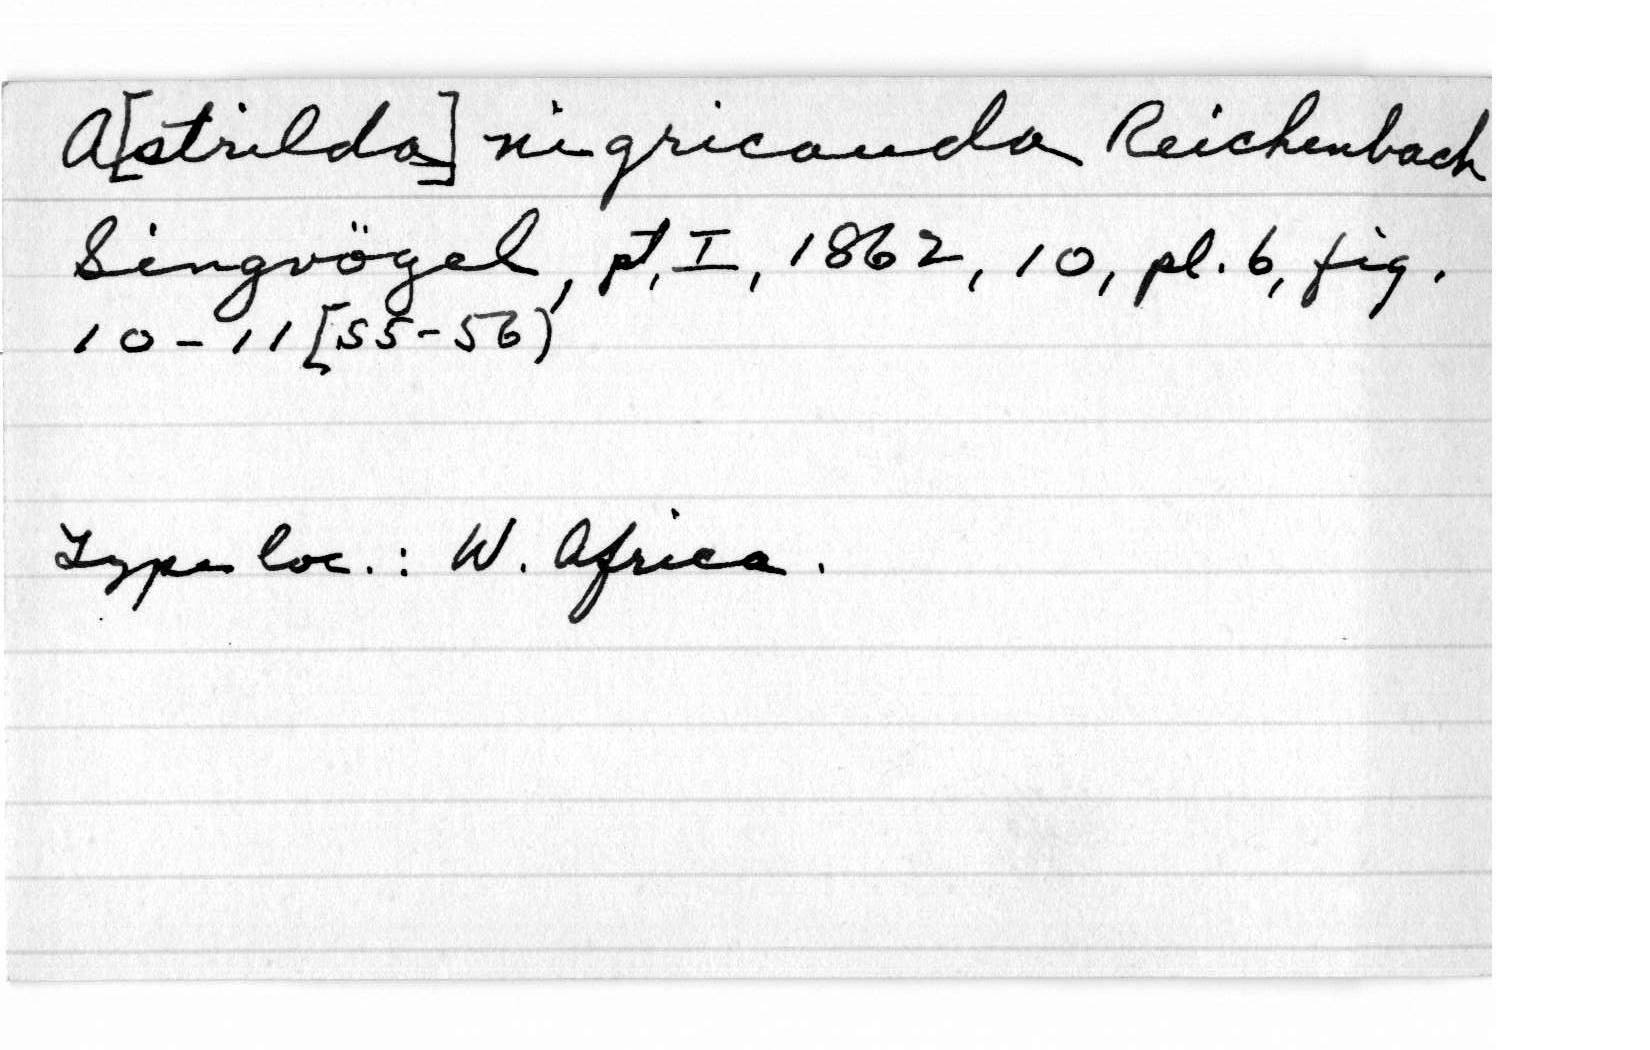 A[strilda] nigricauda Reichenbach
Singvögel, pt. I, 1862, 10, pl. 6, fig.
10-11 [55-56)
Type loc.: W. Africa.